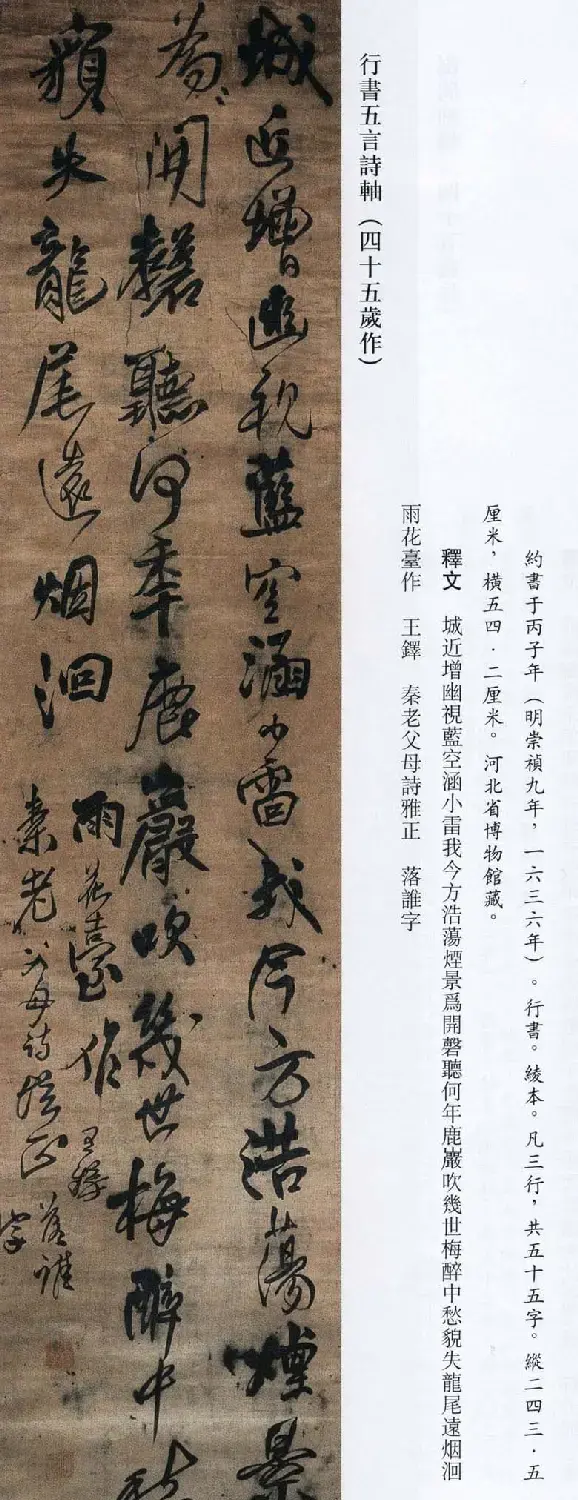 約書于丙子年（明崇禎九年，一六三六年）。行書。綾本。凡三行，共五十五字。縱二四三·五
厘米，橫五四·二厘米。河北省博物館藏。
釋文　城近增幽視藍空涵小雷我今方浩蕩煙景爲開磬聽何年鹿巖吹幾世梅醉中愁貌失龍尾遠烟洄
雨花臺作　王鐸　秦老父母詩雅正　落誰字
行書五言詩軸（四十五歲作）
城近增幽視藍空涵小雷我今方浩蕩煙景
爲開磬聽何年鹿巖吹幾世梅醉中愁
貌失龍尾遠烟洄
雨花臺作 王鐸
秦老父母詩雅正 落誰
字